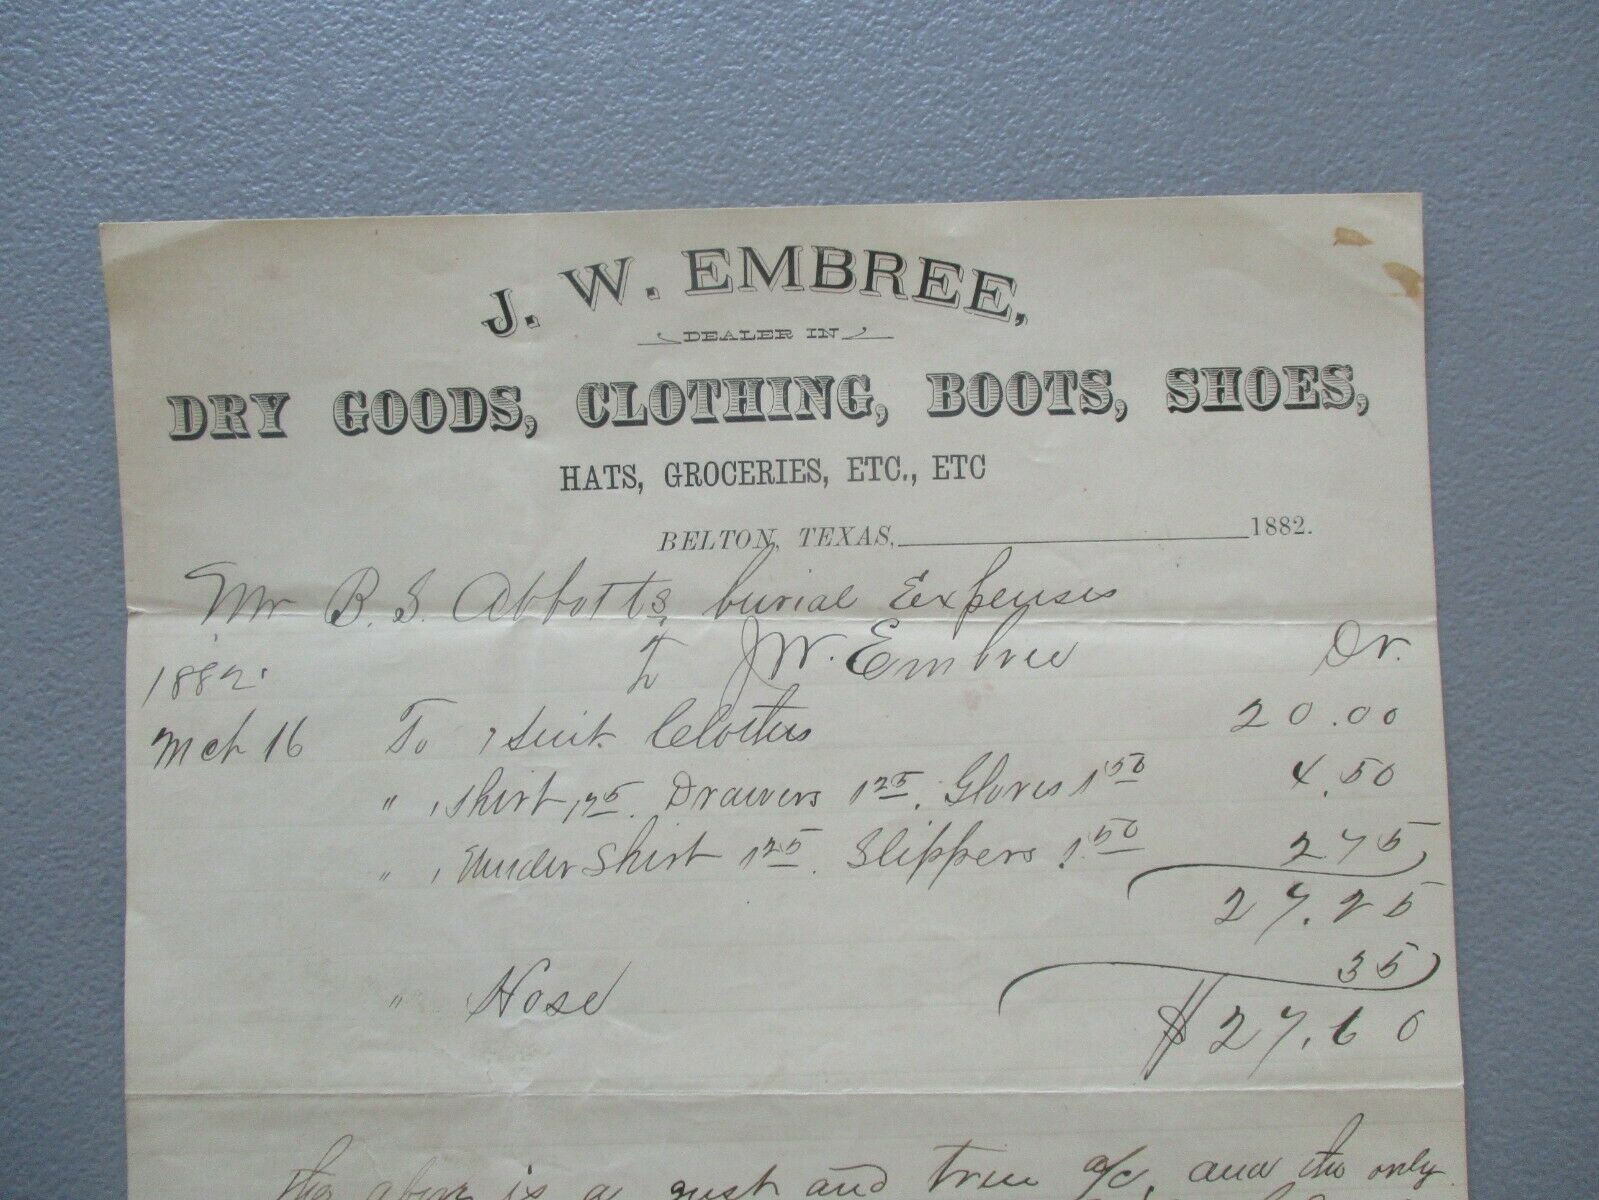 J. W. EMBREE,
DEALER IN
DRY GOODS, CLOTHING, BOOTS, SHOES,
HATS, GROCERIES, ETC., ETC
BELTON, TEXAS, 1882.
Mr B. S. Abbotts, burial Expenses
To J W. Embree Dr.
1882.
Mch 16 To 1 Suit Clothes 20.00
" 1 Shirt 175. Drawers 125. Gloves 150 4.50
" 1 Under Shirt 125. Slippers 150 275
27.25
" Hose 35
$27.60
The above is a just and true a/c, and the only